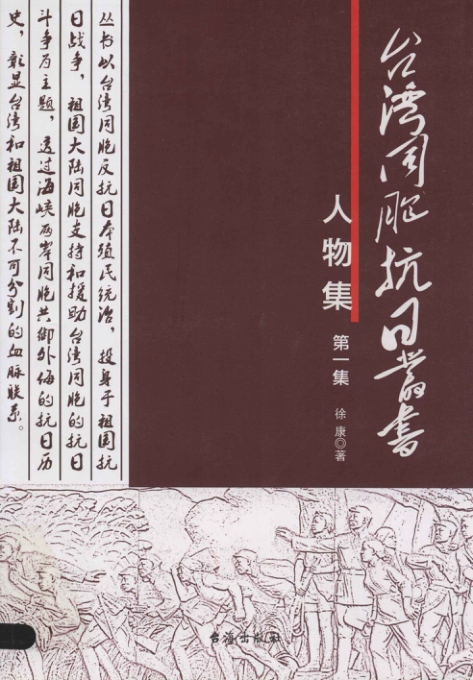 台湾同胞抗日叢书
人物集
第一集
徐康◎著
丛书以台湾同胞反抗日本殖民统治，投身于祖国抗
日战争，祖国大陆同胞支持和援助台湾同胞的抗日
斗争为主题，透过海峡两岸同胞共御外侮的抗日历
史，彰显台湾和祖国大陆不可分割的血脉联系。
台海出版社